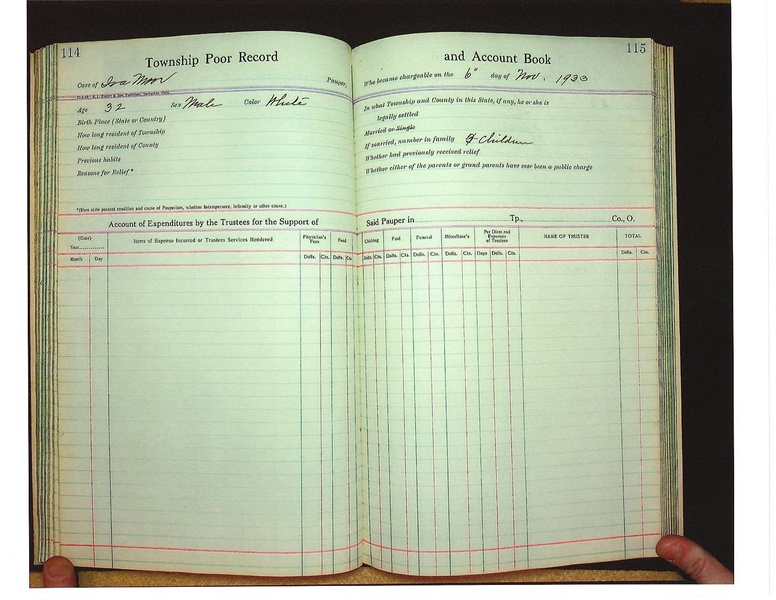 114
Township Poor Record
Case of Iva Moor Pauper,
Age 32 Sex Male Color White
Birth Place (State or Country)
How long resident of Township
How long resident of County
Previous habits
Reasons for Relief*
*(Here state present condition and cause of Pauperism, whether Intemperance, Infirmity or other cause.)
Account of Expenditures by the Trustees for the Support of
(Date)
Year
Items of Expense Incurred or Trustees Services Rendered
Physician's Fees
Food
Month Day Dolls. Cts. Dolls. Cts.
115
and Account Book
Who became chargeable on the 6" day of Nov. 1933
In what Township and County in this State, if any, he or she is
legally settled
Married or Single
If married, number in family Children
Whether had previously received relief
Whether either of the parents or grand parents have ever been a public charge
Said Pauper in Tp., Co., O.
Clothing Fuel Funeral Miscellane's Per Diem and Expenses of Trustees NAME OF TRUSTEE TOTAL
Dolls. Cts. Dolls. Cts. Dolls. Cts. Dolls. Cts. Days Dolls. Cts. Dolls. Cts.